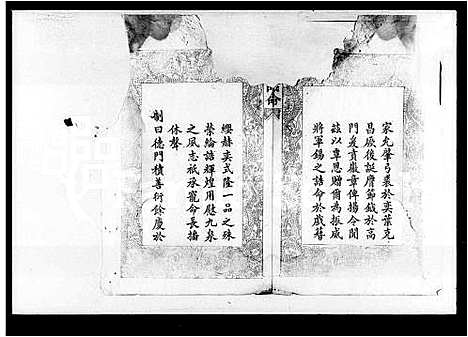 誥命
家光肇弓裘於奕葉克
昌厥後誕膺節鉞於高
門爰賁徽章俾揚令聞
茲以覃恩贈爾為振威
將軍錫之誥命於戲簪
纓赫奕式隆一品之殊
榮綸誥輝煌用慰九泉
之風志祇承寵命長播
休聲
制曰德門積善衍餘慶於